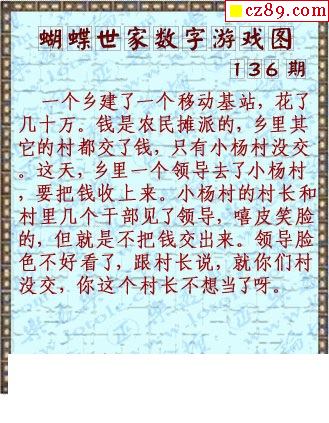 cz89.com
蝴蝶世家数字游戏图
136期
一个乡建了一个移动基站，花了
几十万。钱是农民摊派的，乡里其
它的村都交了钱，只有小杨村没交
。这天，乡里一个领导去了小杨村
，要把钱收上来。小杨村的村长和
村里几个干部见了领导，嘻皮笑脸
的，但就是不把钱交出来。领导脸
色不好看了，跟村长说，就你们村
没交，你这个村长不想当了呀。